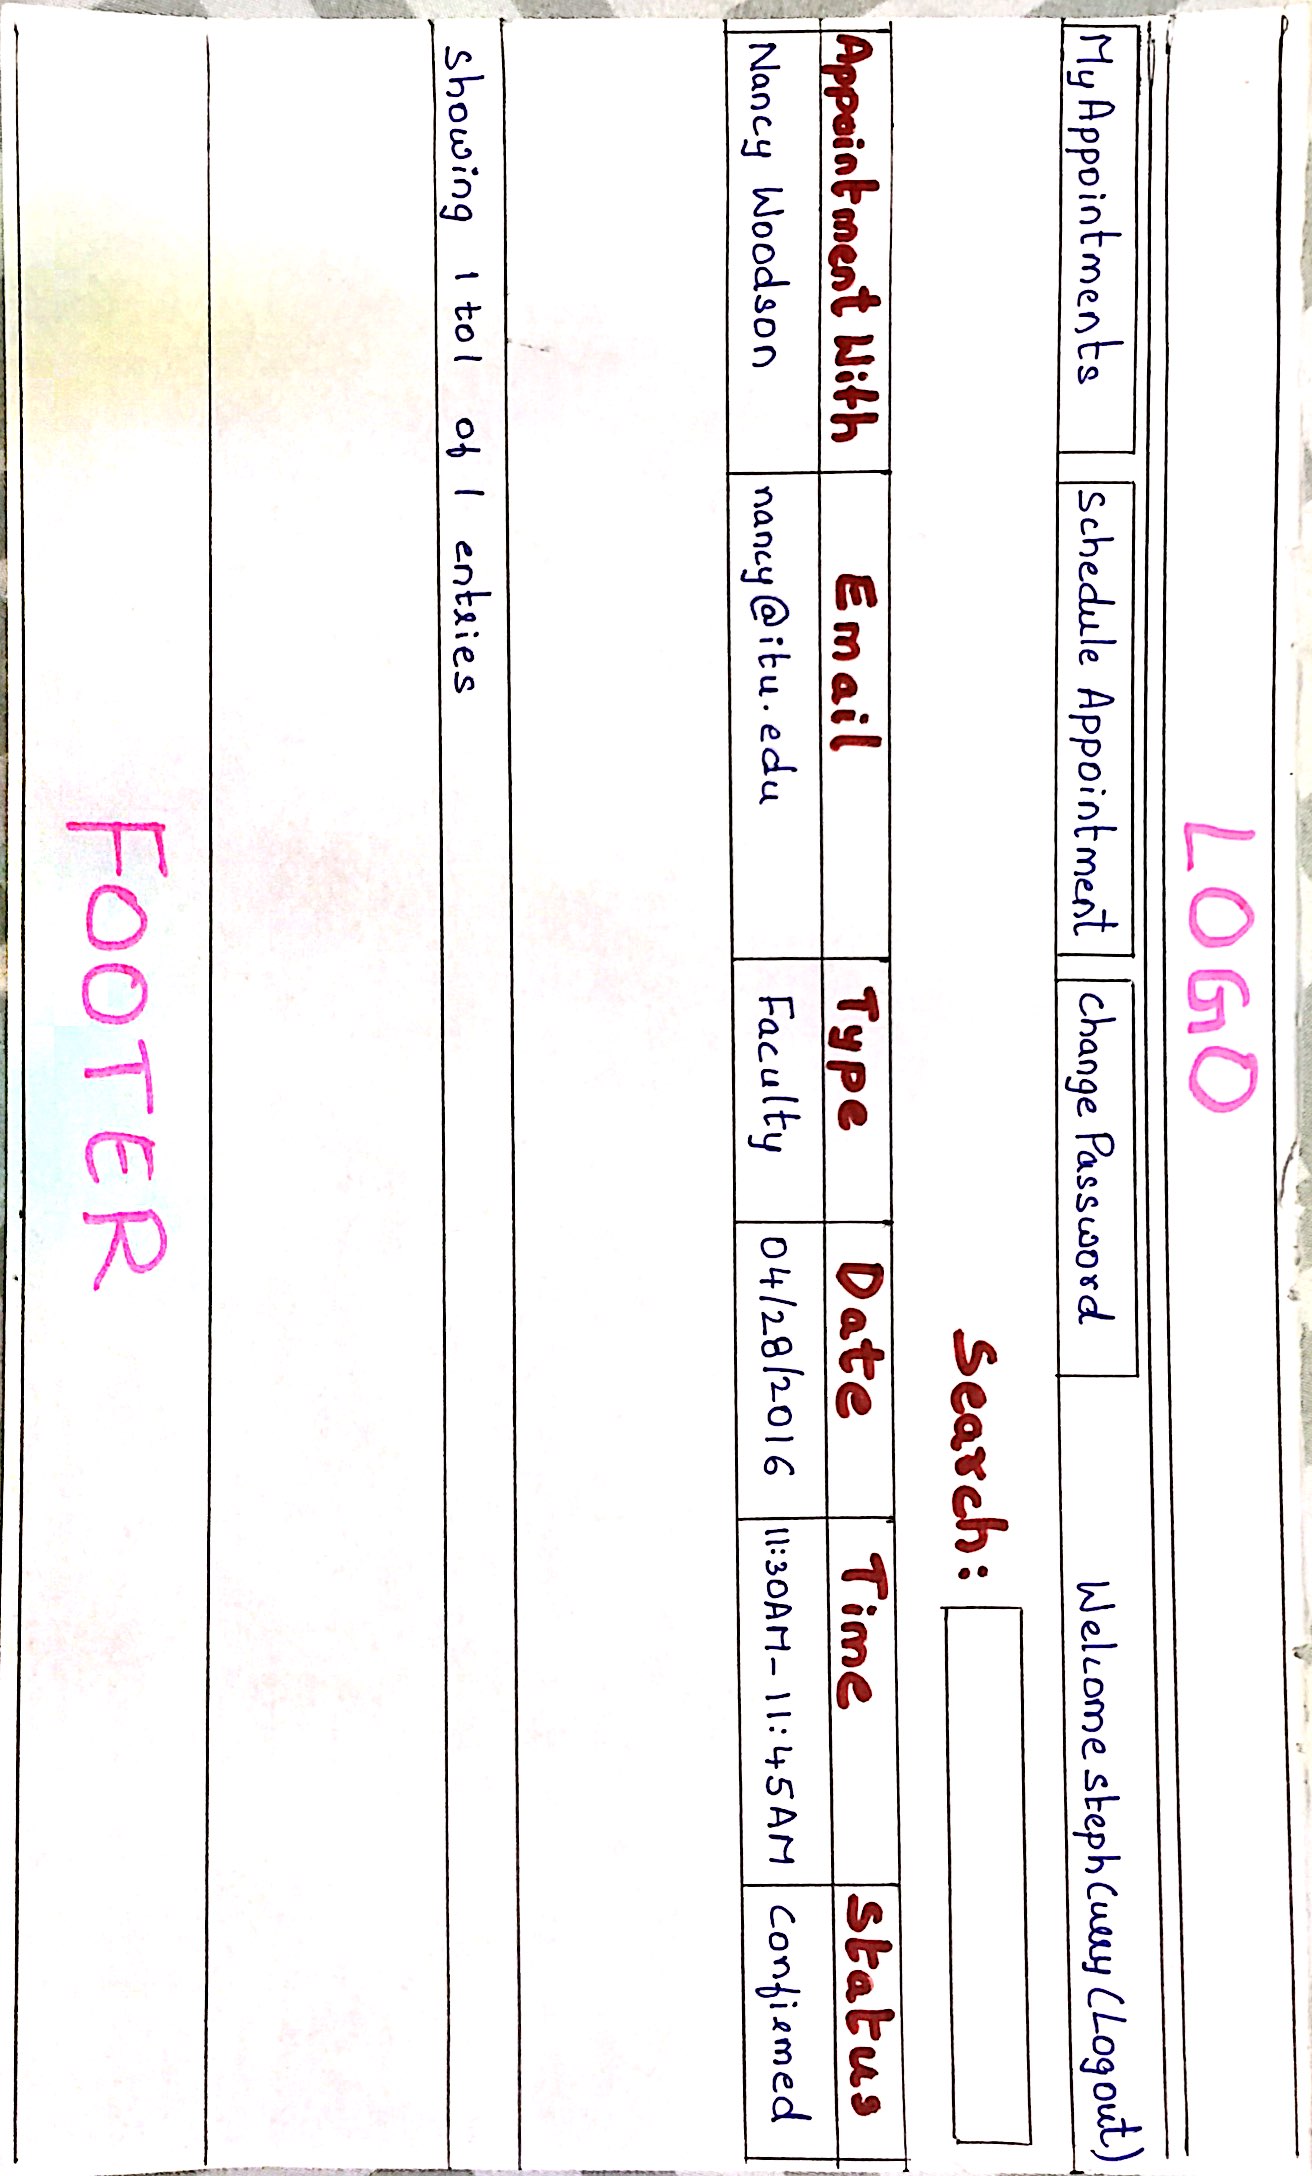 LOGO
My Appointments Schedule Appointment Change Password Welcome Steph Curry (Logout)
Search:
Appointment With Email Type Date Time Status
Nancy Woodson nancy@itu.edu Faculty 04/28/2016 11:30AM-11:45AM Confirmed
Showing 1 to 1 of 1 entries
FOOTER